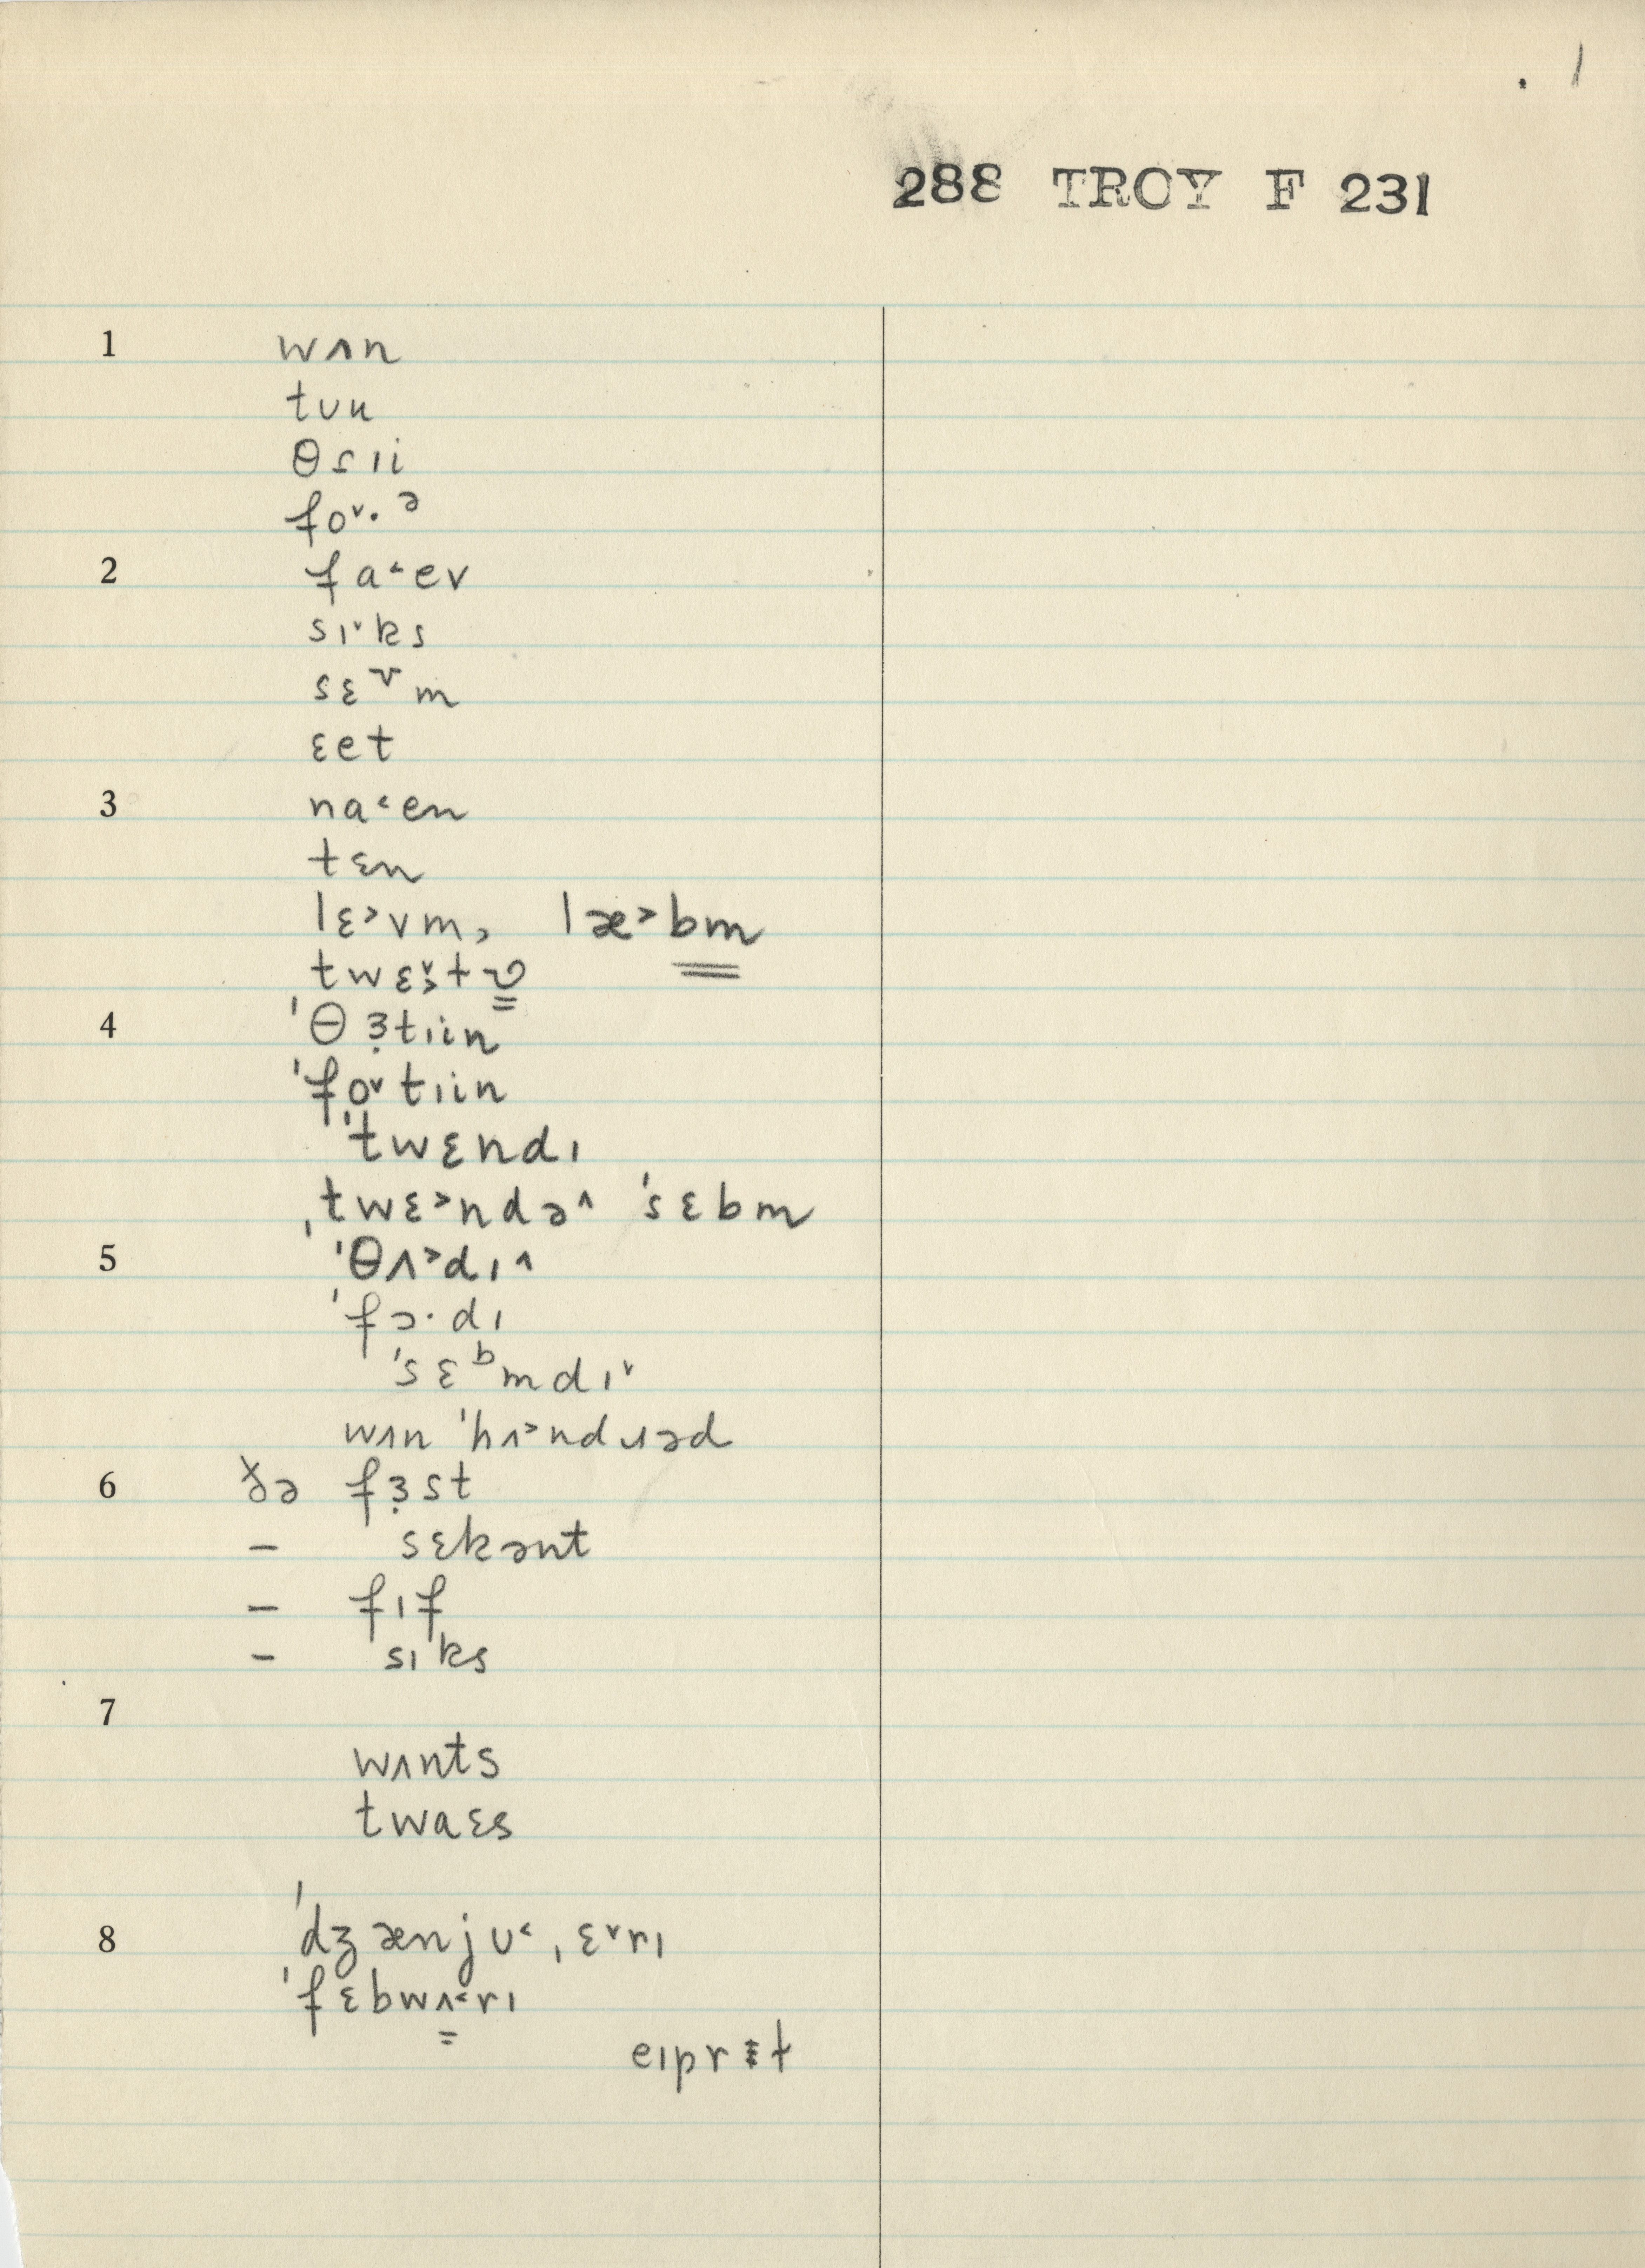 . 1
288 TROY F 231
1 wʌn
tʊu
θɾɪi
foᵛ·ᵊ
2 fa˂ev
sɪ˅ks
sɛᵛm
ɛet
3 na˂en
tɛn
lɛ˃vm, læ˃bm
twɛ˅˃t
4 ˈθɜ̣tɪin
ˈfo˅tɪin
ˈtwɛndɪ
ˌtwɛ˃ndə˄ ˈsɛbm
5 ˈθʌ˃dɪ˄
ˈfɔ·dɪ
ˈsɛᵇmdɪ˅
wʌn ˈhʌ˃ndɹəd
6 ðə fɜ̣st
– sɛkənt
– fɪf
– sɪks
7
wʌnts
twaɛs
8 ˈdʒænjʊ˂ˌɛ˅rɪ
ˈfɛbwʌ˂rɪ
eɪprɫ